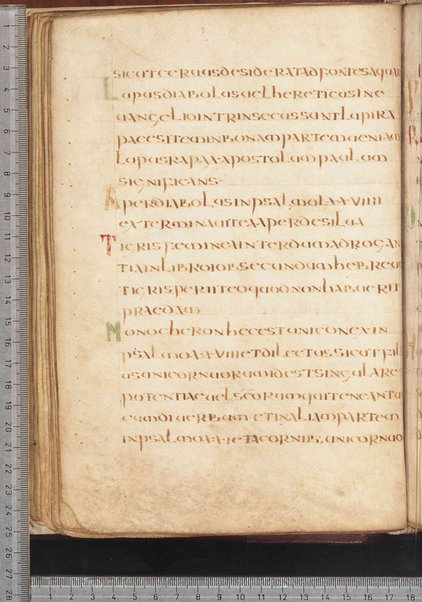 sicut ceruus desiderat ad fontes aquar
Lupus diabolus uel hereticus in e
uangelio intrinsecus sunt lupi ra
paces item in bonam partem ueniam
lupus rapax apostolum paulum
significans·
Aper diabolus in psalmo lxxuiiii
exterminauit ea aper de silua
Tigris femineinterdum adrogan
tia in libro iob secundum hebreu
tigris periit eo quod non haberet
praedam
Monoceron hec est unicone x in
psalmo xxuiii et dilectus sicut fili
us unicornuorum id est singulares
potentiae uel scorum qui tenent u
eum diuerbum et in aliam partem
in psalmo xxi et a cornib; unicornuo